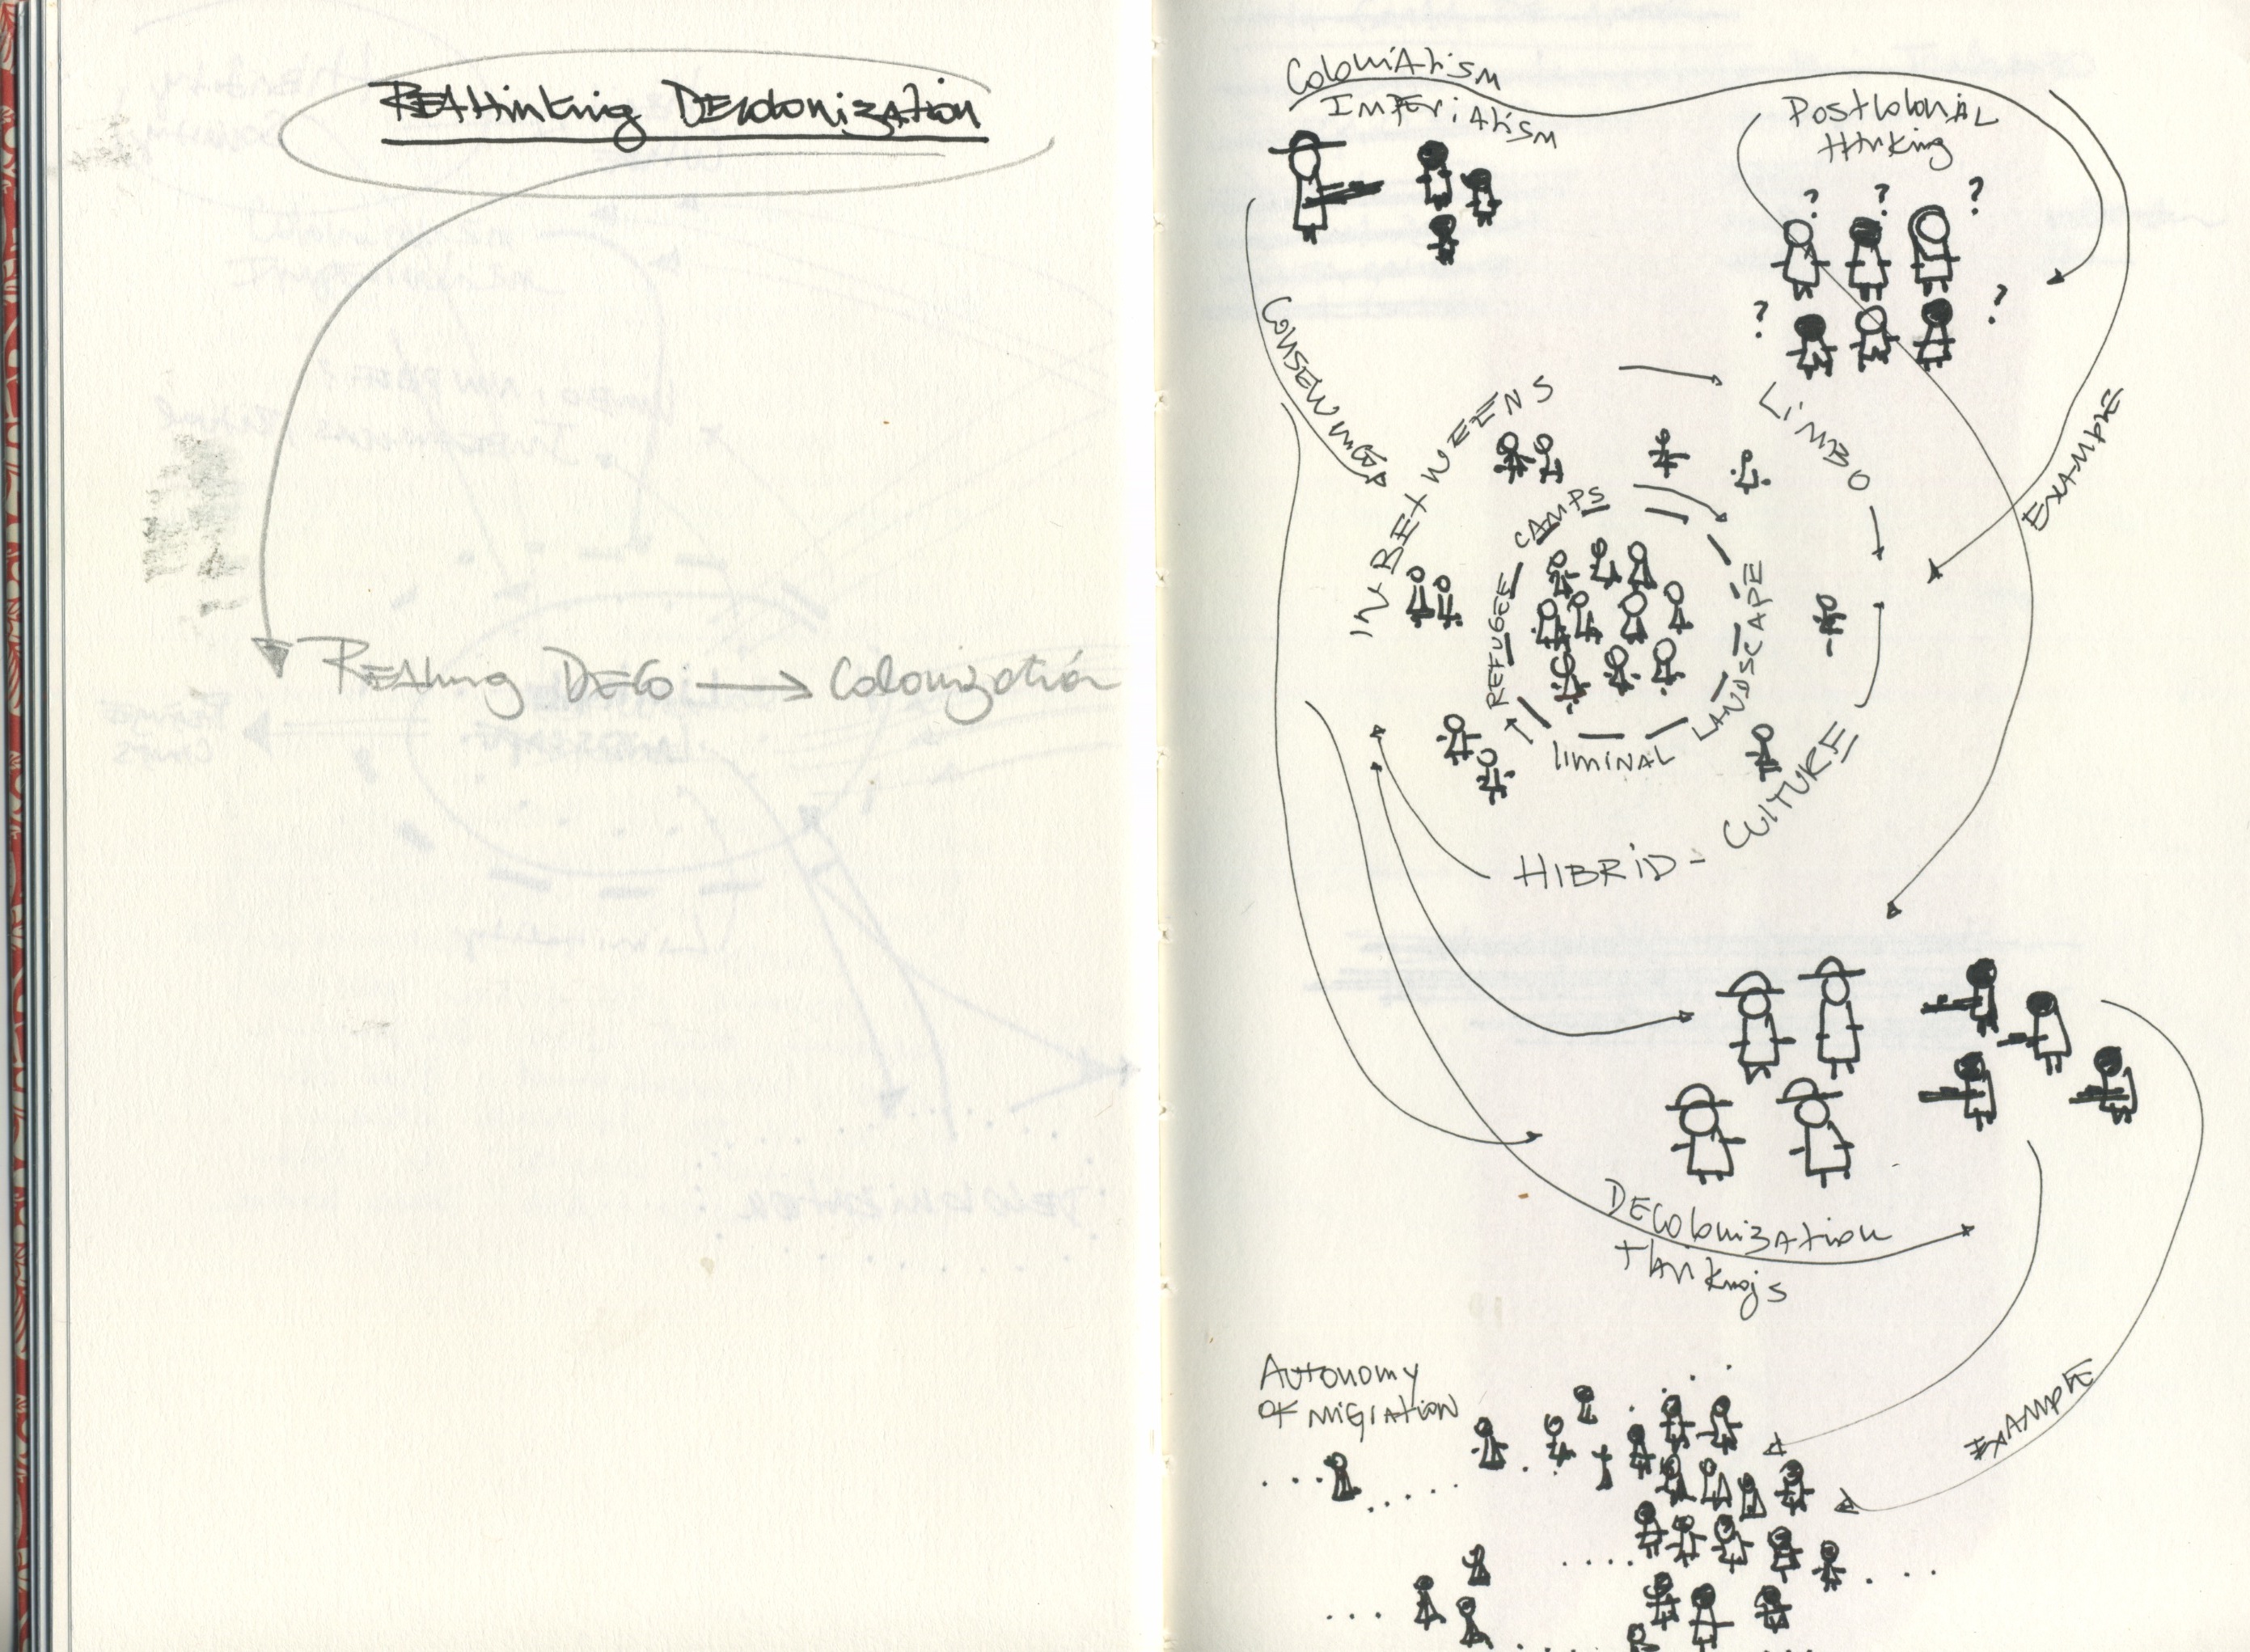 REthinking DEcolonization
REthinkg DECO → Colonization
ColoniAlism
ImpEriAlism
PostcolonIAL
thinking
? ? ?
? ?
IN BEtWEENS
LiMBO
EXAMPlE
REFUGEE CAMPS
LANDSCAPE
liMINAL
CUlTURE
HIBRiD -
DEColonizAtion
thinkings
Autonomy
OF MIGrAtion
EXAMPlE